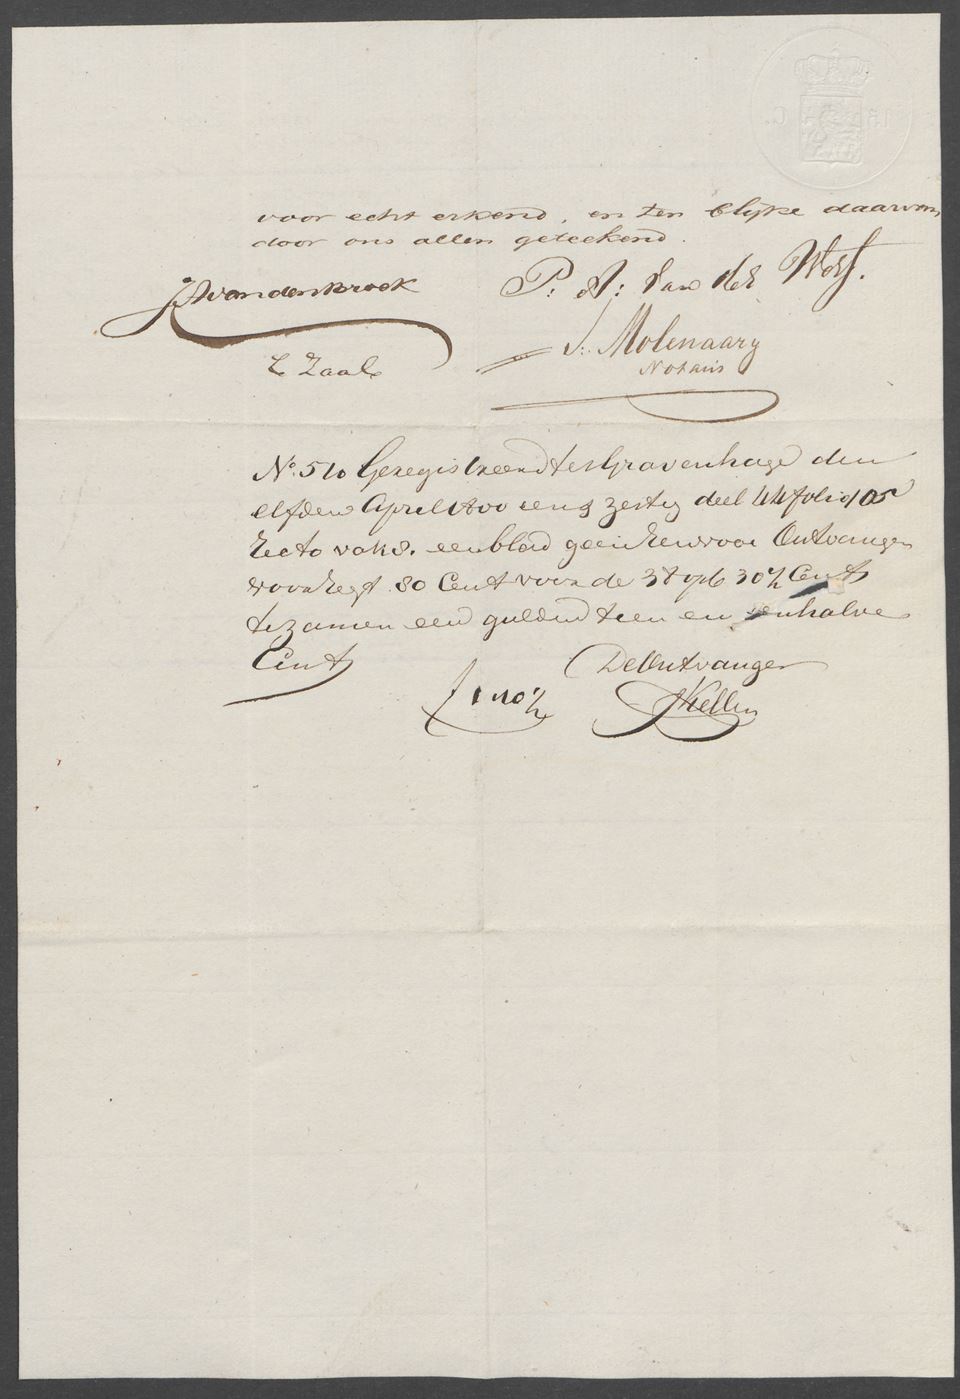 voor echt erkend, en ten blijke daarvan,
door ons allen geteekend.
JAvandenBroek
P: A: van der Werf.
Z Zaal
J: Molenaar
Notaris
No. 510 Geregistreerd te sGravenhage den
elfden April 1800 een & zestig deel 44 folio 105
recto vak 8. een blad geen renvooi Ontvangen
voor regt 80 Cent voor de 38 opc 30½ Cent
te zamen een gulden tien en een halve
Cent
De Ontvanger
f 1.10½